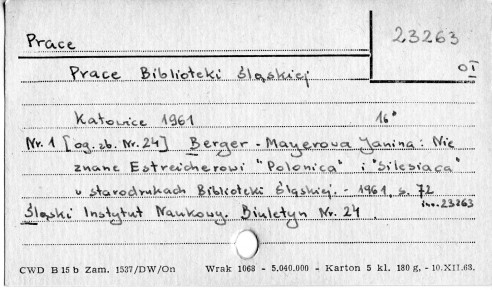 Prace
23263
OI
Prace Biblioteki Śląskiej
Katowice 1961 16°
Nr. 1 [og. zb. Nr. 24] Berger-Mayerowa Janina: Nie
znane Estreicherowi "Polonica" i "Silesiaca"
w starodrukach Biblioteki Śląskiej. - 1961, s. 72
Śląski Instytut Naukowy. Biuletyn Nr. 24. inw. 23263
CWD B 15 b Zam. 1537/DW/On Wrak 1068 - 5.040.000 - Karton 5 kl. 180 g. - 10.XII.63.